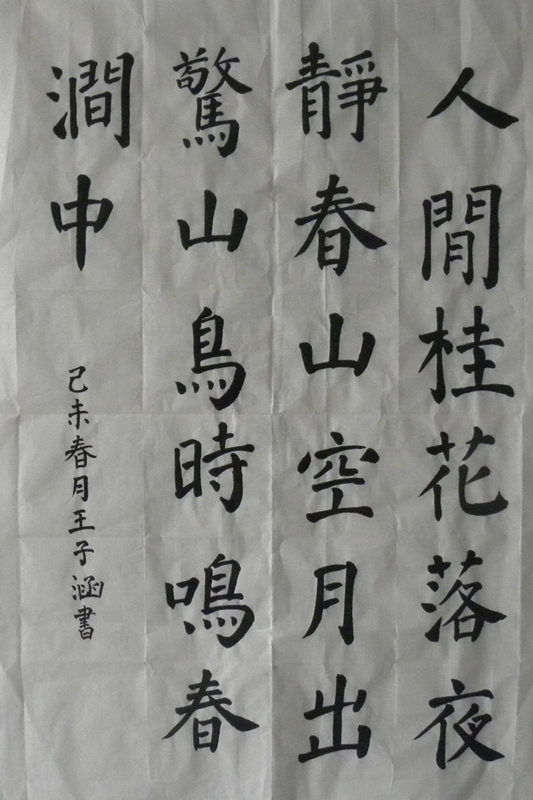 人閒桂花落夜
靜春山空月出
驚山鳥時鳴春
澗中
己未春月王子涵書